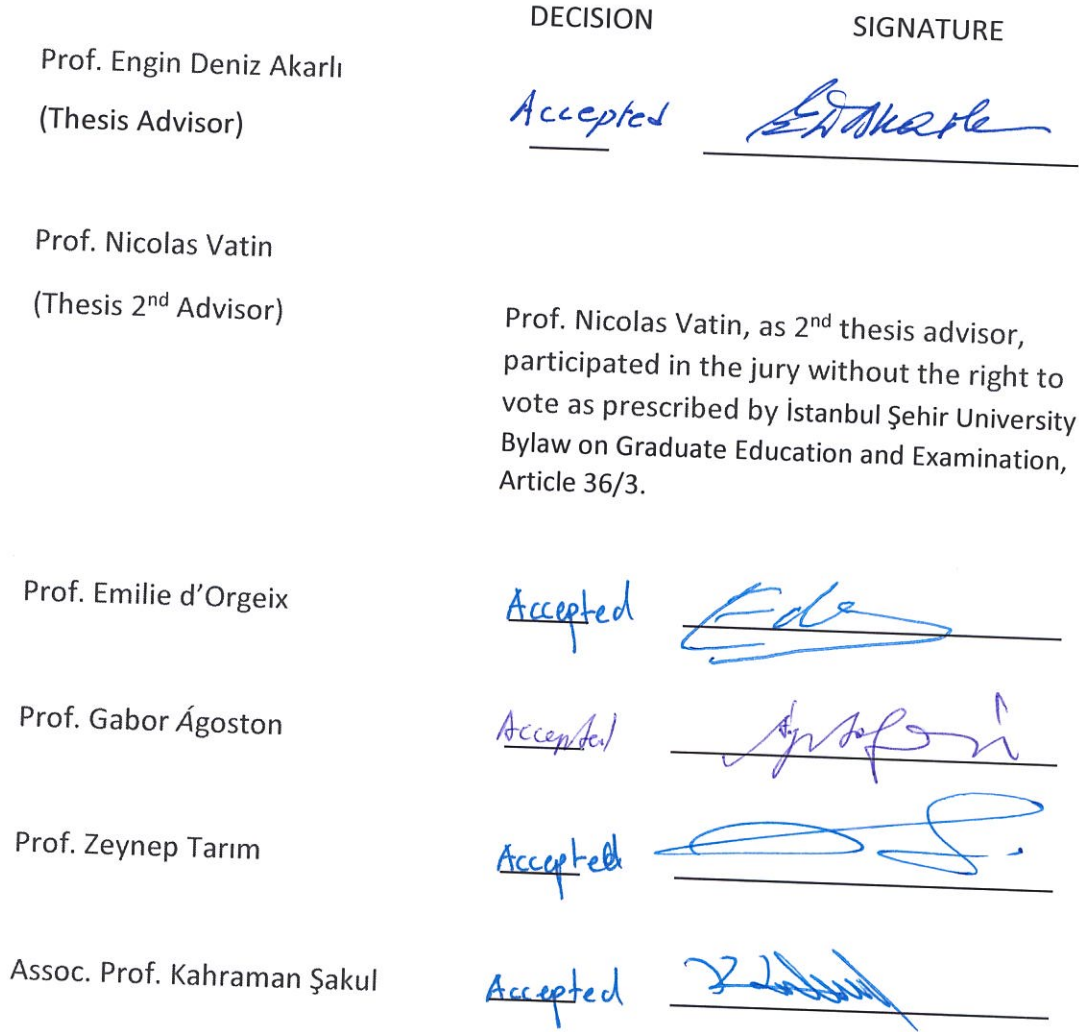 DECISION SIGNATURE
Prof. Engin Deniz Akarlı
(Thesis Advisor) Accepted
Prof. Nicolas Vatin
(Thesis 2nd Advisor)
Prof. Nicolas Vatin, as 2nd thesis advisor,
participated in the jury without the right to
vote as prescribed by İstanbul Şehir University
Bylaw on Graduate Education and Examination,
Article 36/3.
Prof. Emilie d’Orgeix Accepted
Prof. Gabor Ágoston Accepted
Prof. Zeynep Tarım Accepted
Assoc. Prof. Kahraman Şakul Accepted